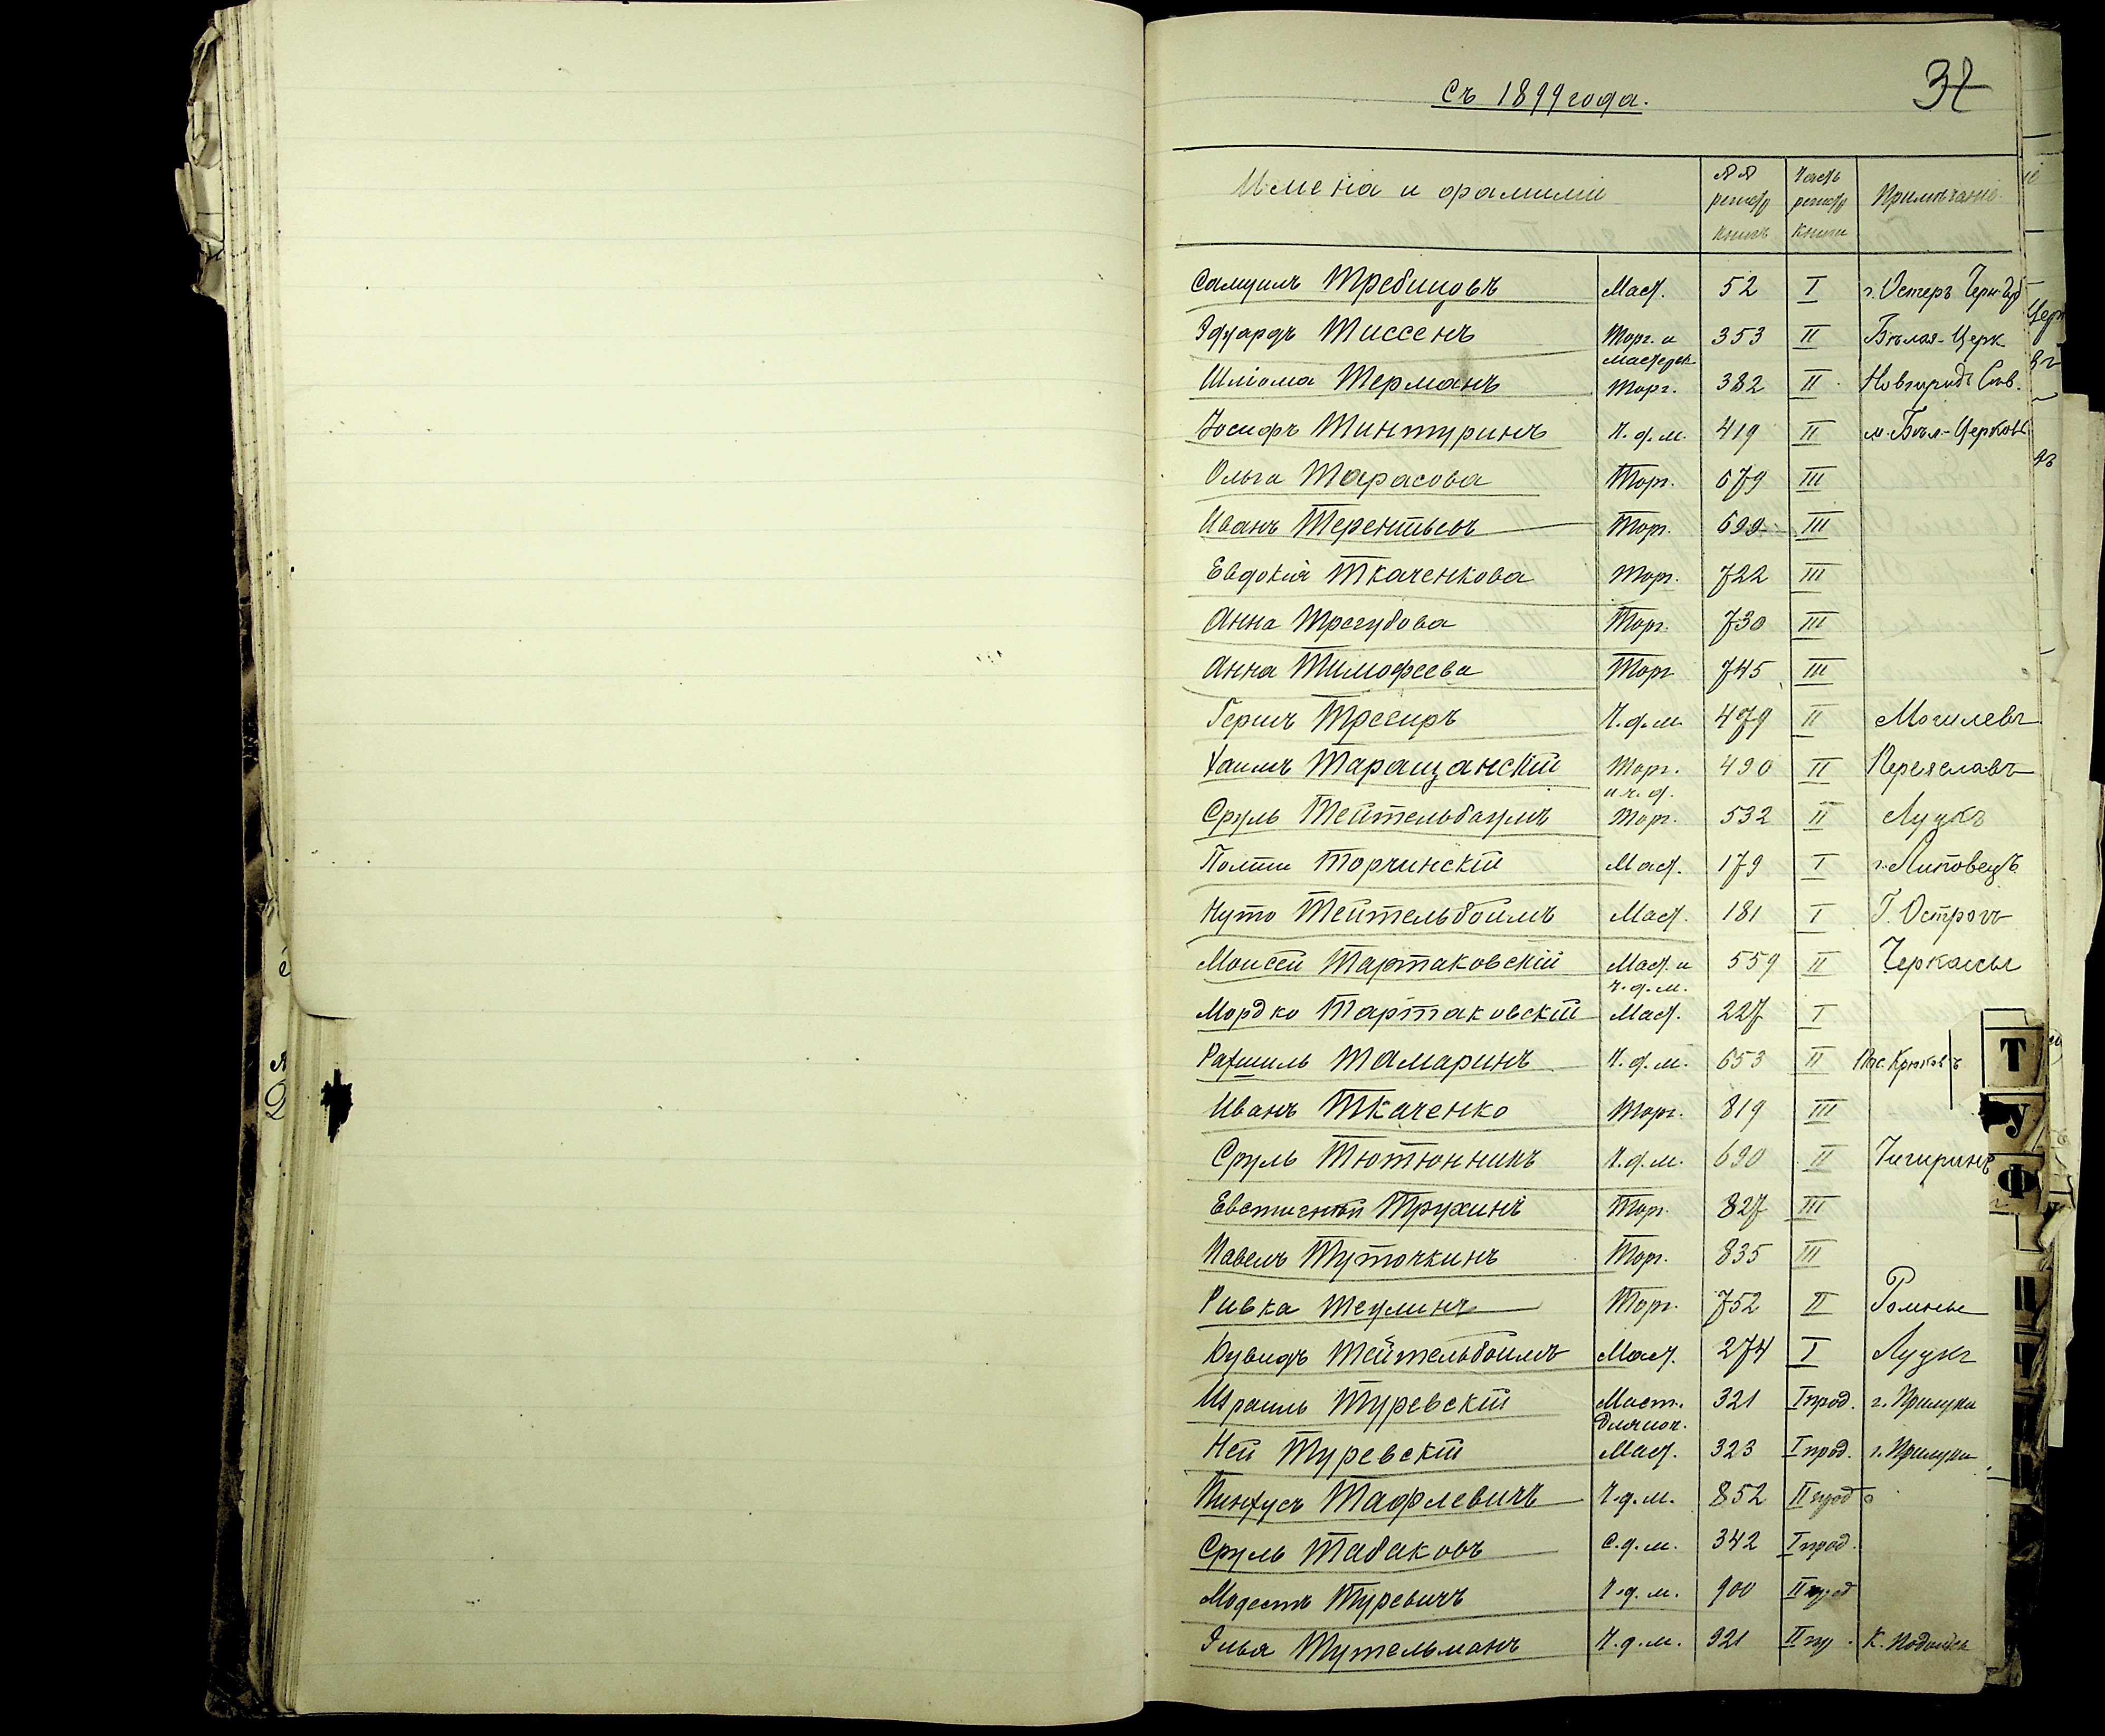 Съ 1899 года.
Имена и фамилии №№ регистр книгъ Часть регистр книги Примѣчание.
Самуилъ Требицовъ Маст. 52 I г. Остеръ Черн. Губ
Эдуардъ Тиссенъ Торг. и 353 II Бѣлая-Церк
мастерск
Шліома Терманъ Торг. 382 II Новгородъ Сѣв.
Іосифъ Тинтуринъ Ч. д. м. 419 II м. Бѣл-Церковь
Ольга Тарасова Торг. 679 III
Иванъ Терентьевъ Торг. 699 III
Евдокія Ткаченкова Торг. 722 III
Анна Трегубова Торг. 730 III
Анна Тимофеева Торг 745 III
Гершъ Трегиръ Ч. д. м. 479 II Могилевъ
Хаимъ Таращанскій Торг. 490 II Переяславъ
и ч. д.
Сруль Тейтельбаумъ Торг. 532 II Луцкъ
Торчинскій Маст. 179 I г. Липовецъ
Нуто Тейтельбоимъ Маст. 181 I Г. Острогъ
Моисей Тартаковскій Маст. и 559 II Черкассы
ч. д. м.
Мордко Тартаковскій Маст. 227 I
Рахмиль Тамаринъ Ч. д. м. 653 II Пос. Крюковъ
Т
Иванъ Ткаченко Торг. 819 III
У
Сруль Тютюнникъ Ч. д. м. 690 II Чигиринъ
Ф
Евстигней Трухинъ Торг. 827 III
Павелъ Туточкинъ Торг. 835 III
Ривка Теулинъ Торг. 752 II Ромны
Дувидъ Тейтельбоимъ Маст. 274 I Луцкъ
Израиль Туревскій Маст. 321 I прод. г. Прилуки
Ней Туревскій Маст. 323 I прод. г. Прилуки
Пинхусъ Тафлевичъ Ч. д. м. 852 II прод
Сруль Табаковъ С. д. м. 342 I прод.
Модестъ Туревичъ Ч. д. м. 900 II прод
Элья Тутельманъ Ч. д. м. 921 II пр. К. Подольск